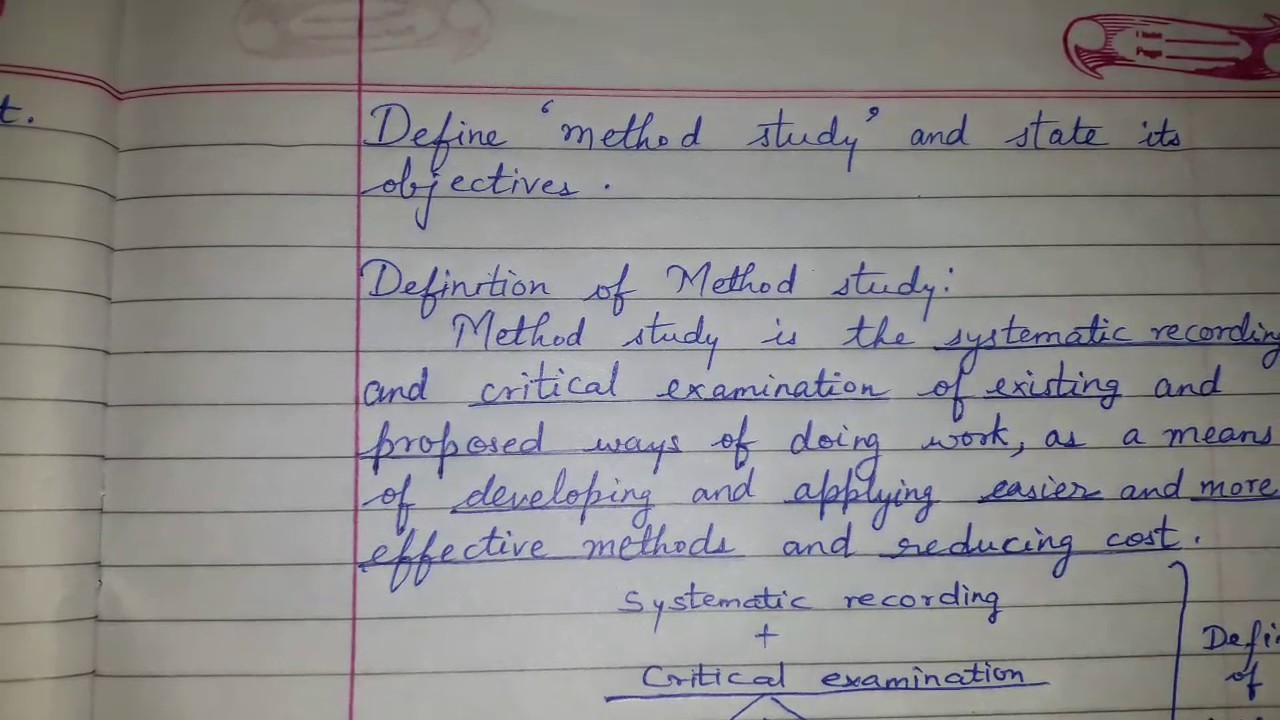 t.
Define ‘method study’ and state its
objectives.
Definition of Method study:
Method study is the systematic recording
and critical examination of existing and
proposed ways of doing work, as a means
of developing and applying easier and more
effective methods and reducing cost.
Systematic recording
+
Critical examination
Defi
of